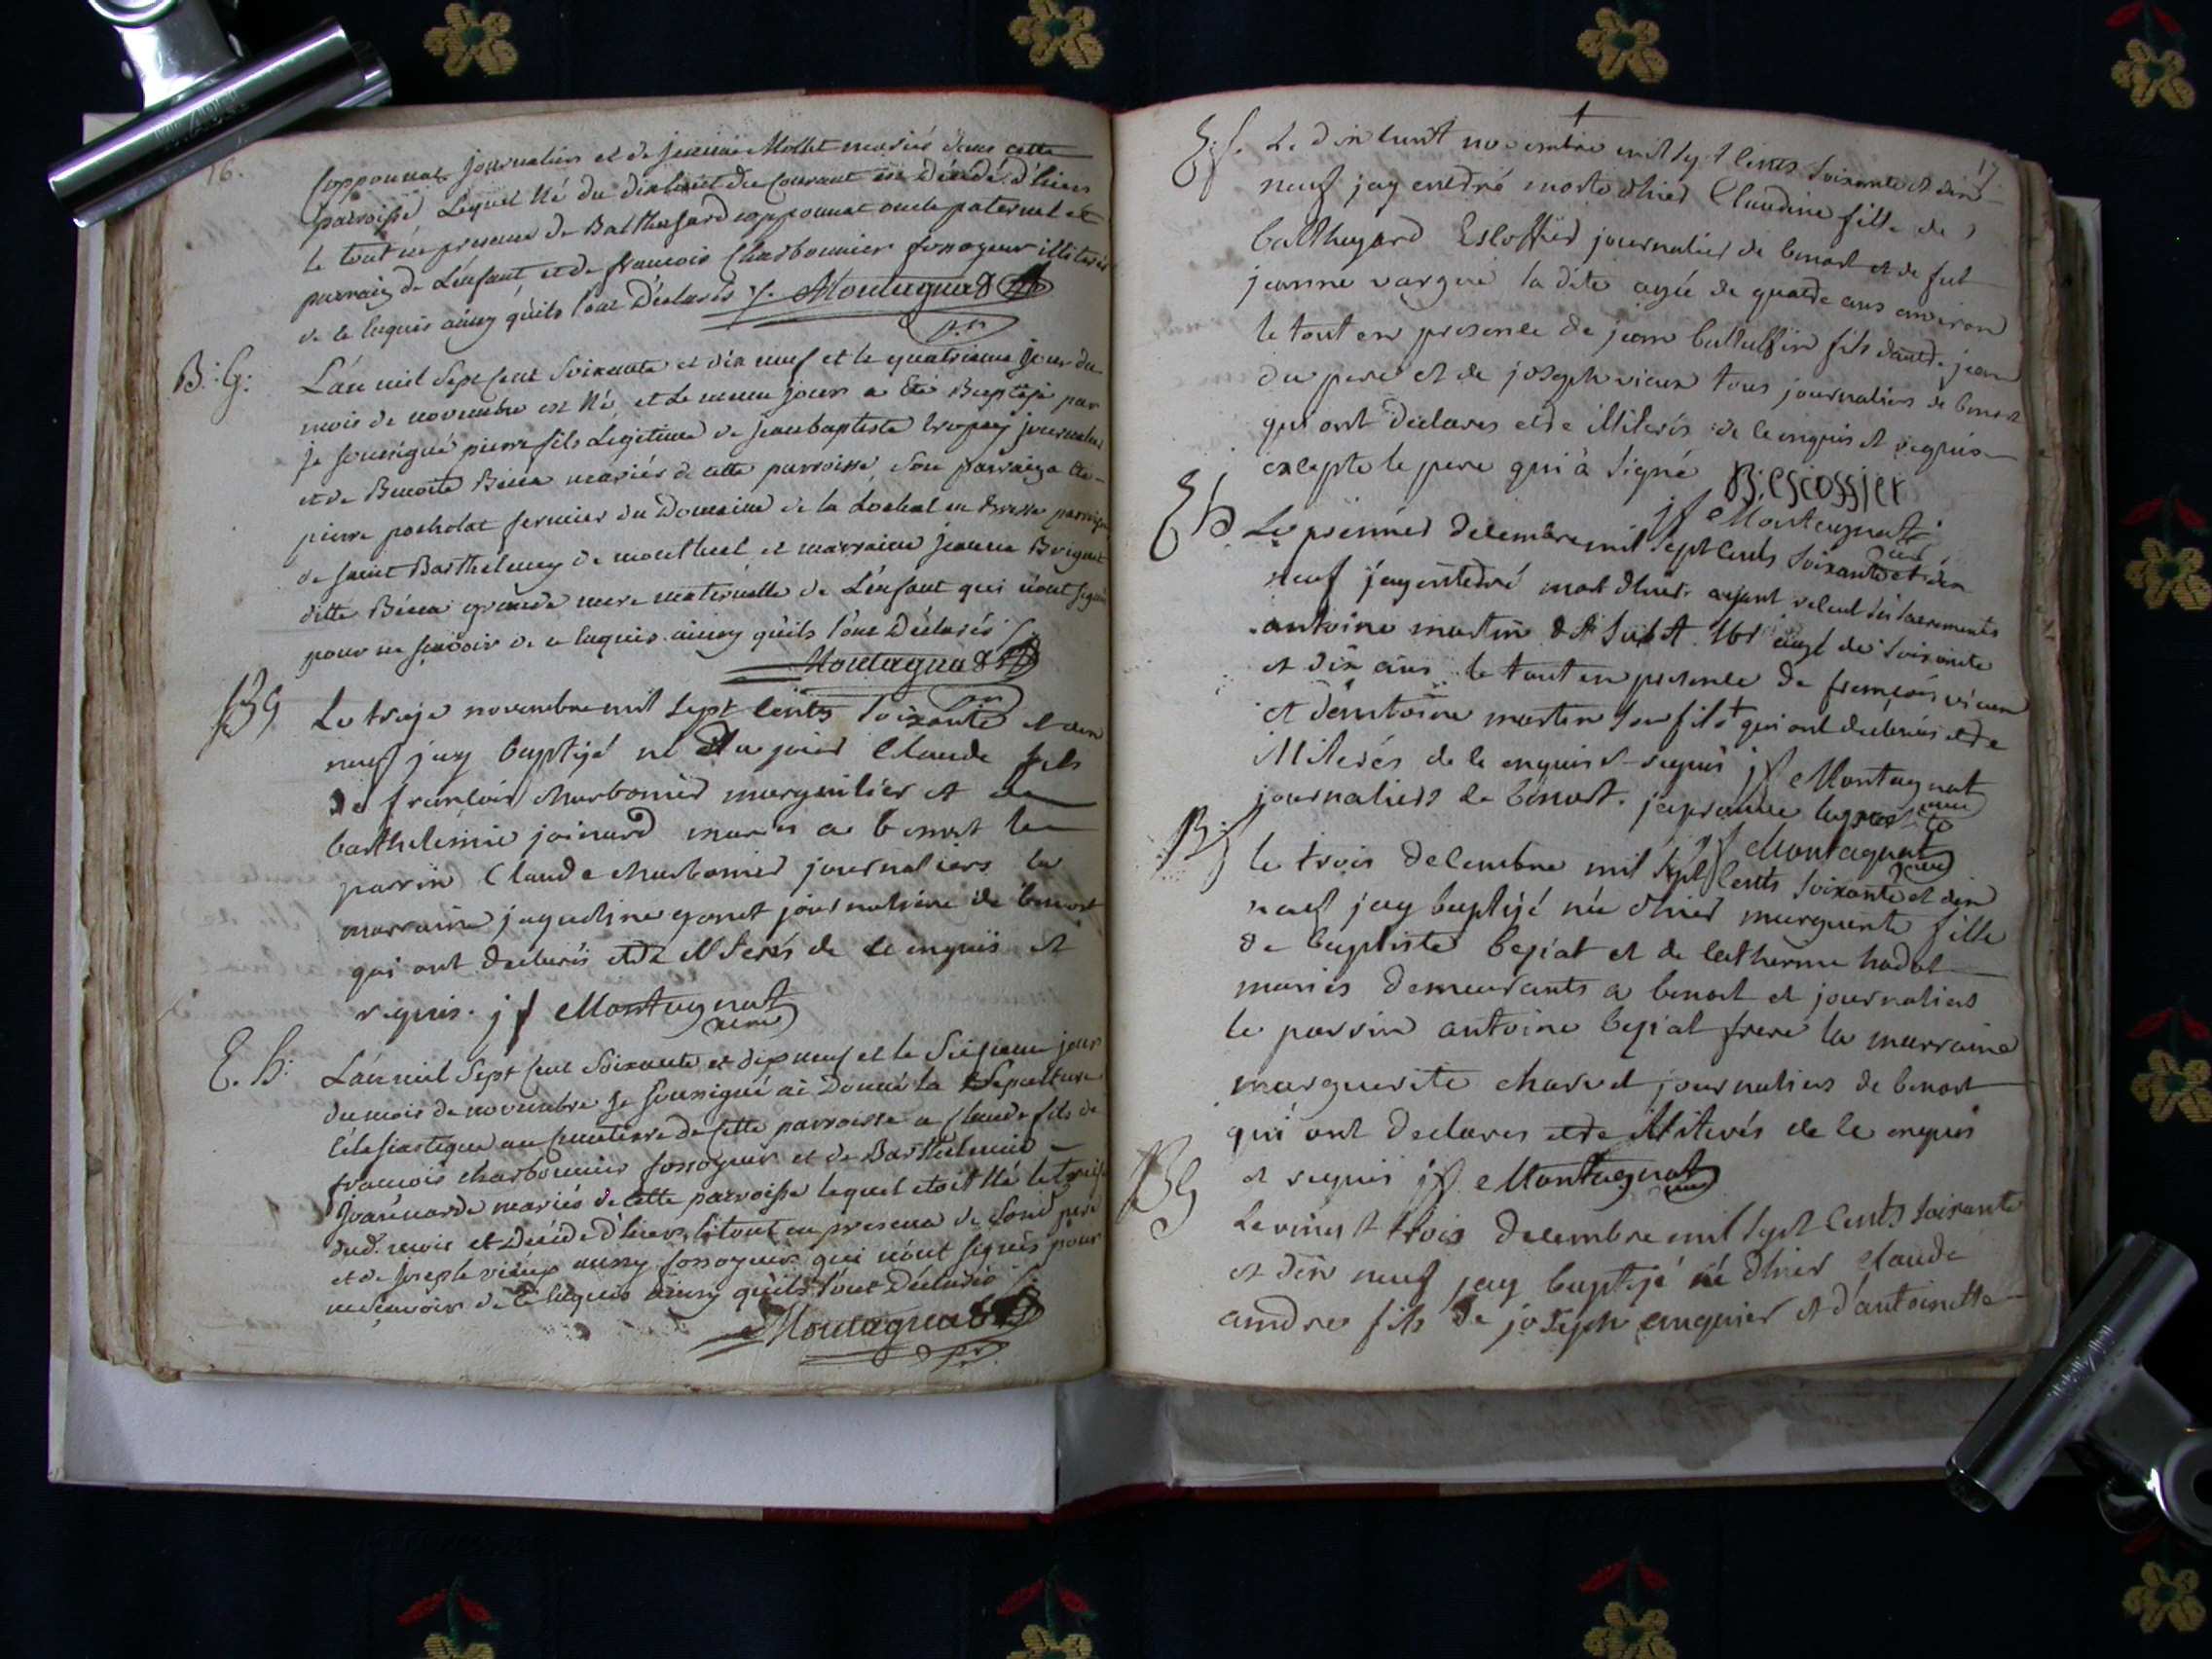 16.
Copponnat journalier et de jeanne Mollet mariés dans cette
parroisse Lequel Né du dixhuict du Courant est Décédé d'hier
le tout en presence de Balthesard copponnat oncle paternel et
parrain de L'enfant, et de francois Charbonnier fossoyeur illiteres
de ce enquis ainsy qu'ils l'ont Déclarés ./. Montagnat
B: G:
L'an mil Sept Cent Soixante et dix neuf et le quatrieme Jour du
mois de novembre est Né et Le meme jour a été Baptisé par
je soussigné pierre fils Légitime de Jean baptiste journalier
et de Benoite Béna mariés de cette parroisse, son parrain a été
pierre pocholat fermier du Domaine de la en Bresse parroisse
de saint Barthelemy de montluel et marraine jeanne
ditte Béna grande mere maternelle de L'enfant qui n'ont signé
pour ne sçavoir de ce enquis ainsy qu'ils l'ont Déclarés ./.
Montagnat
BG
Le treize novembre mil sept cents soixante et dix
neuf jay baptizé né du jour Claude fils
de françois charbonier marguilier et de
barthelémie joinard mariés a benost le
parrin Claude charbonier journaliers la
marraine jaqueline gonet journaliere de benost
qui ont declarés etre illiterés de ce enquis et
requis. jf Montagnat
E. G:
L'an mil Sept Cent Soixante et dix neuf et le Seizieme jour
du mois de novembre Je soussigné ai Donné la Sepulture
Eclesiastique au Cimetierre de Cette parroisse a Claude fils de
francois charbonnier fossoyeur et de Barthelemie
Joannarde mariés de Cette parroisse lequel etoit Né le treize
dud. mois et Décédé d'hier, le tout en presence de son d. pere
et de Joseph vieux aussy fossoyeur qui n'ont signés pour
ne sçavoir de ce enquis ainsy qu'ils l'ont Déclarés ./.
Montagnat
17
E:f. Le dix huit novembre mil sept cents soixante et dix
neuf jay enterré morte d'hier Claudine fille de
balthazard Escoffier journalier de benost et de fut
jeanne vargue la dite agée de quatre ans environ
le tout en presence de jean fils d'autre jean
du pere et de joseph vieux tous journaliers de benost
qui ont declares etre illiterés de ce enquis et requis
excepte le pere qui à signé B. escossier
jf Montagnat
EG
Le premier decembre mil sept cents soixante et dix
neuf jay enterré mort d'hier ayant receu les sacrements
antoine martin agé de soixante
et dix ans le tout en presence de françois vieux
et d'antoine martin son fils + qui ont declarés etre
illiterés de ce enquis et requis jf Montagnat
journaliers de benost. japrouve
jf Montagnat
B:f
le trois decembre mil sept cents soixante et dix
neuf jay baptizé née d'hier marguerite fille
de baptiste bejiat et de catherine
mariés demeurants a benost et journaliers
le parrin antoine bejiat frere la marraine
marguerite charvet journaliers de benost
qui ont declares etre illiterés de ce enquis
et requis jf. Montagnat
BG
Le vingt trois decembre mil sept cents soixante
et dix neuf jay baptizé né d'hier claude
andre fils de joseph et d'antoinette